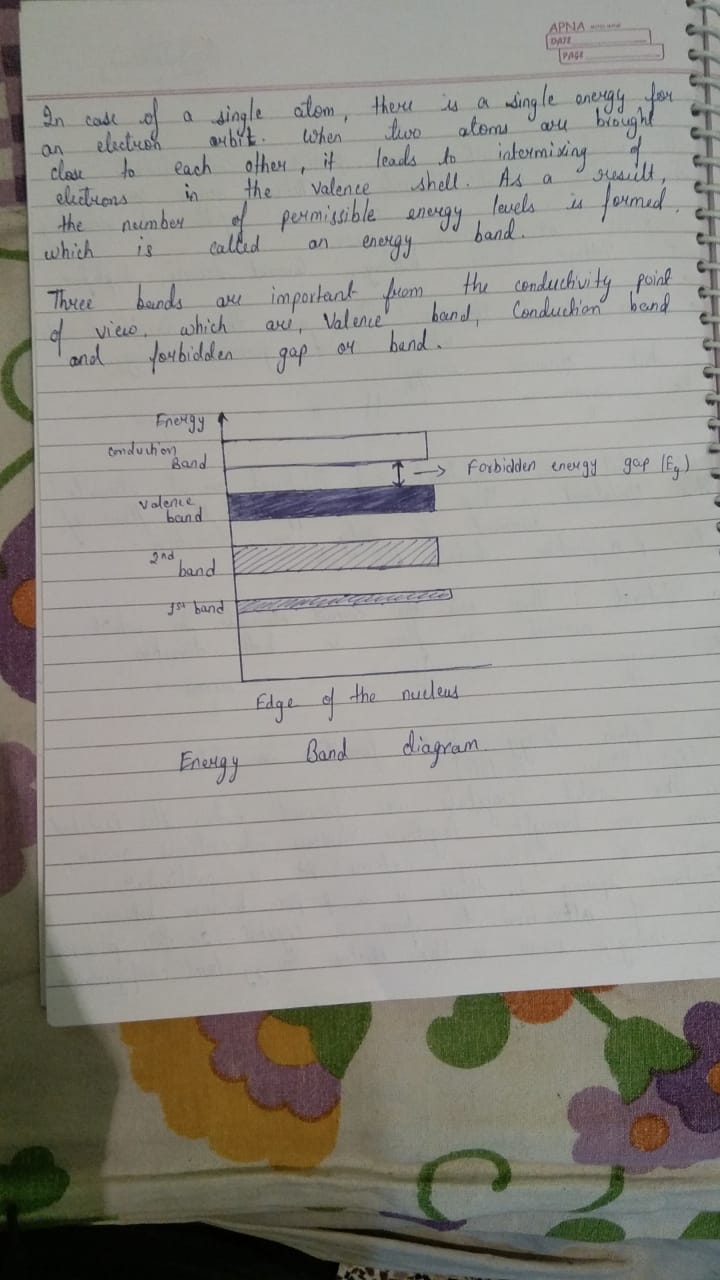 APNA
DATE
PAGE
In case of a single atom, there is a single energy for
an electron orbit. When two atoms are brought
close to each other, it leads to intermixing of
electrons in the valence shell. As a result,
the number of permissible energy levels is formed,
which is called an energy band.
Three bands are important from the conductivity point
of view, which are, Valence band, Conduction band
and forbidden gap or band.
Energy
Conduction
Band
Forbidden energy gap (Eg)
Valence
band
2nd
band
1st band
Edge of the nucleus
Energy Band diagram